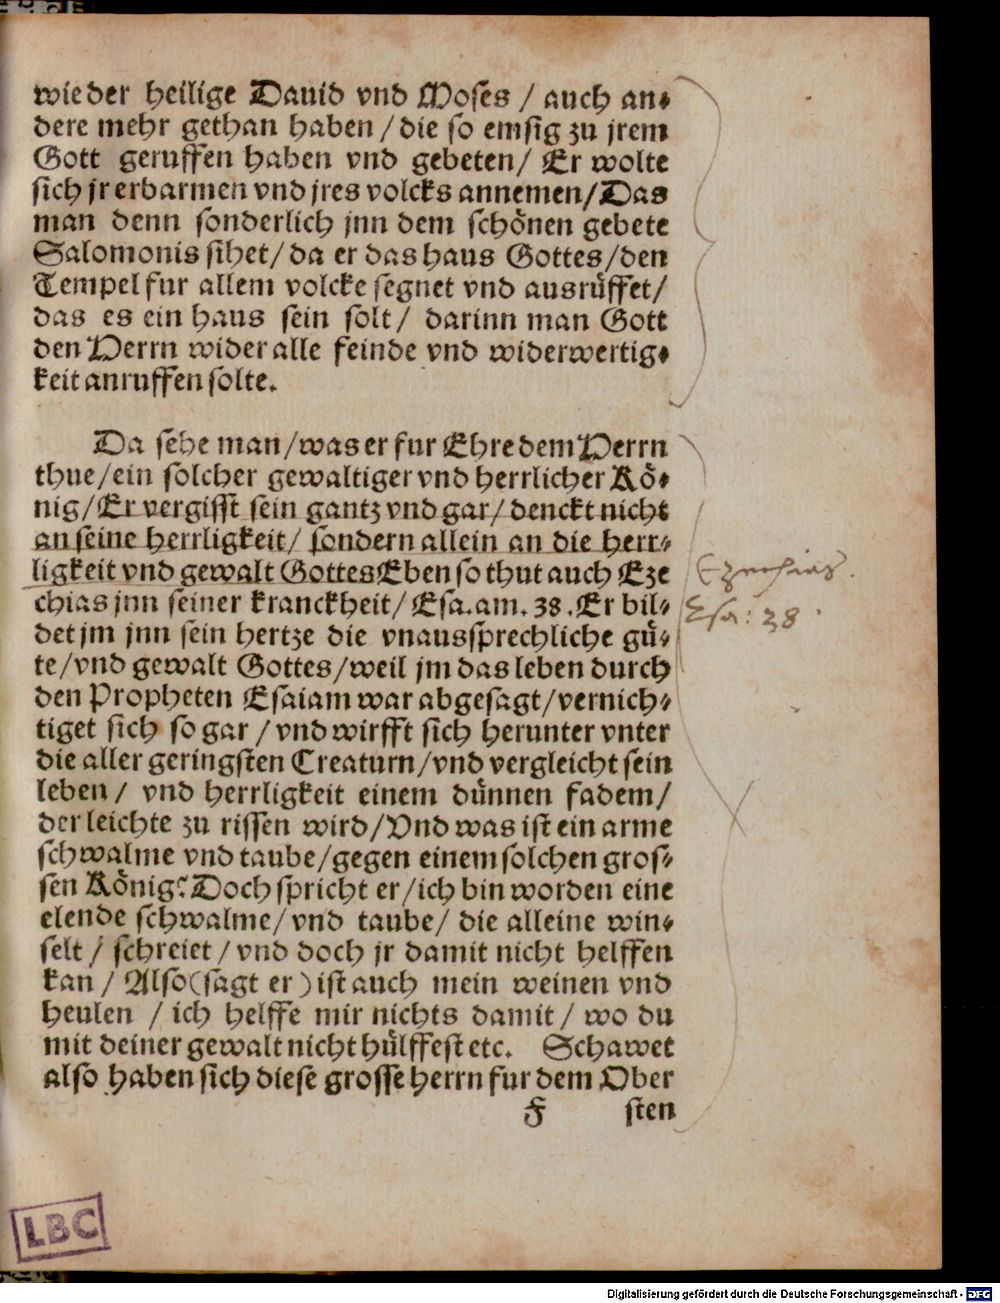 wie der heilige Dauid vnd Moses / auch an⸗
dere mehr gethan haben / die so emsig zu jrem
Gott geruffen haben vnd gebeten / Er wolte
sich jr erbarmen vnd jres volcks annemen / Das
man denn sonderlich jnn dem schönen gebete
Salomonis sihet / da er das haus Gottes / den
Tempel fur allem volcke segnet vnd ausrüffet /
das es ein haus sein solt / darinn man Gott
den Herrn wider alle feinde vnd widerwertig⸗
keit anruffen solte.
Da sehe man / was er fur Ehre dem Herrn
thue / ein solcher gewaltiger vnd herrlicher Kö⸗
nig / Er vergisst sein gantz vnd gar / denckt nicht
an seine herrligkeit / sondern allein an die herr⸗
ligkeit vnd gewalt Gottes Eben so thut auch Eze
chias jnn seiner kranckheit / Esa. am. 38. Er bil⸗
det jm jnn sein hertze die vnaussprechliche gü⸗
te / vnd gewalt Gottes / weil jm das leben durch
den Propheten Esaiam war abgesagt / vernich⸗
tiget sich so gar / vnd wirfft sich herunter vnter
die aller geringsten Creaturn / vnd vergleicht sein
leben / vnd herrligkeit einem dünnen fadem /
der leichte zu rissen wird / Vnd was ist ein arme
schwalme vnd taube / gegen einem solchen gros⸗
sen König? Doch spricht er / ich bin worden eine
elende schwalme / vnd taube / die alleine win⸗
selt / schreiet / vnd doch jr damit nicht helffen
kan / Also (sagt er) ist auch mein weinen vnd
heulen / ich helffe mir nichts damit / wo du
mit deiner gewalt nicht hülffest etc. Schawet
also haben sich diese grosse herrn fur dem Ober
F sten
Ezechias.
Esa: 38.
LBC
Digitalisierung gefördert durch die Deutsche Forschungsgemeinschaft - DFG